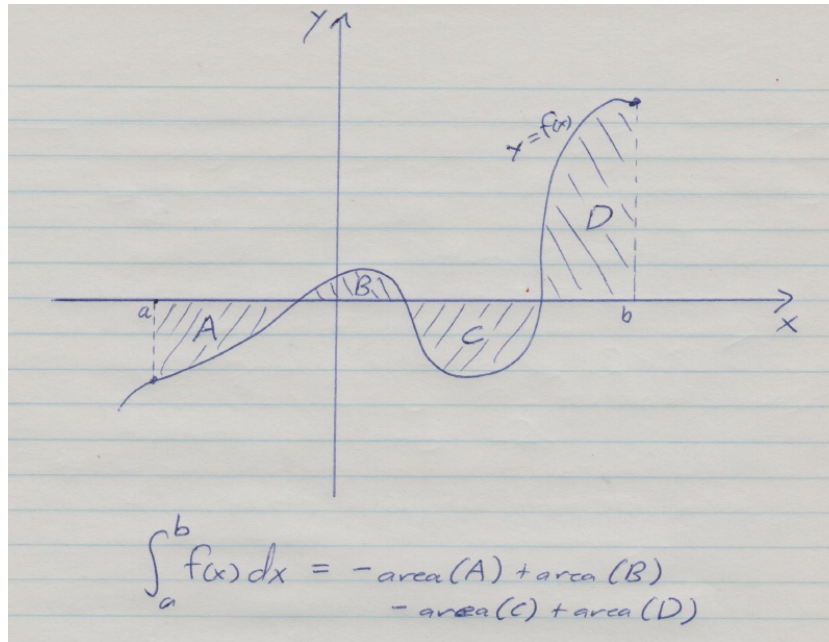 y
y = f(x)
D
B
a
b
x
A
C
∫_a^b f(x) dx = -area(A) + area(B)
- area(C) + area(D)